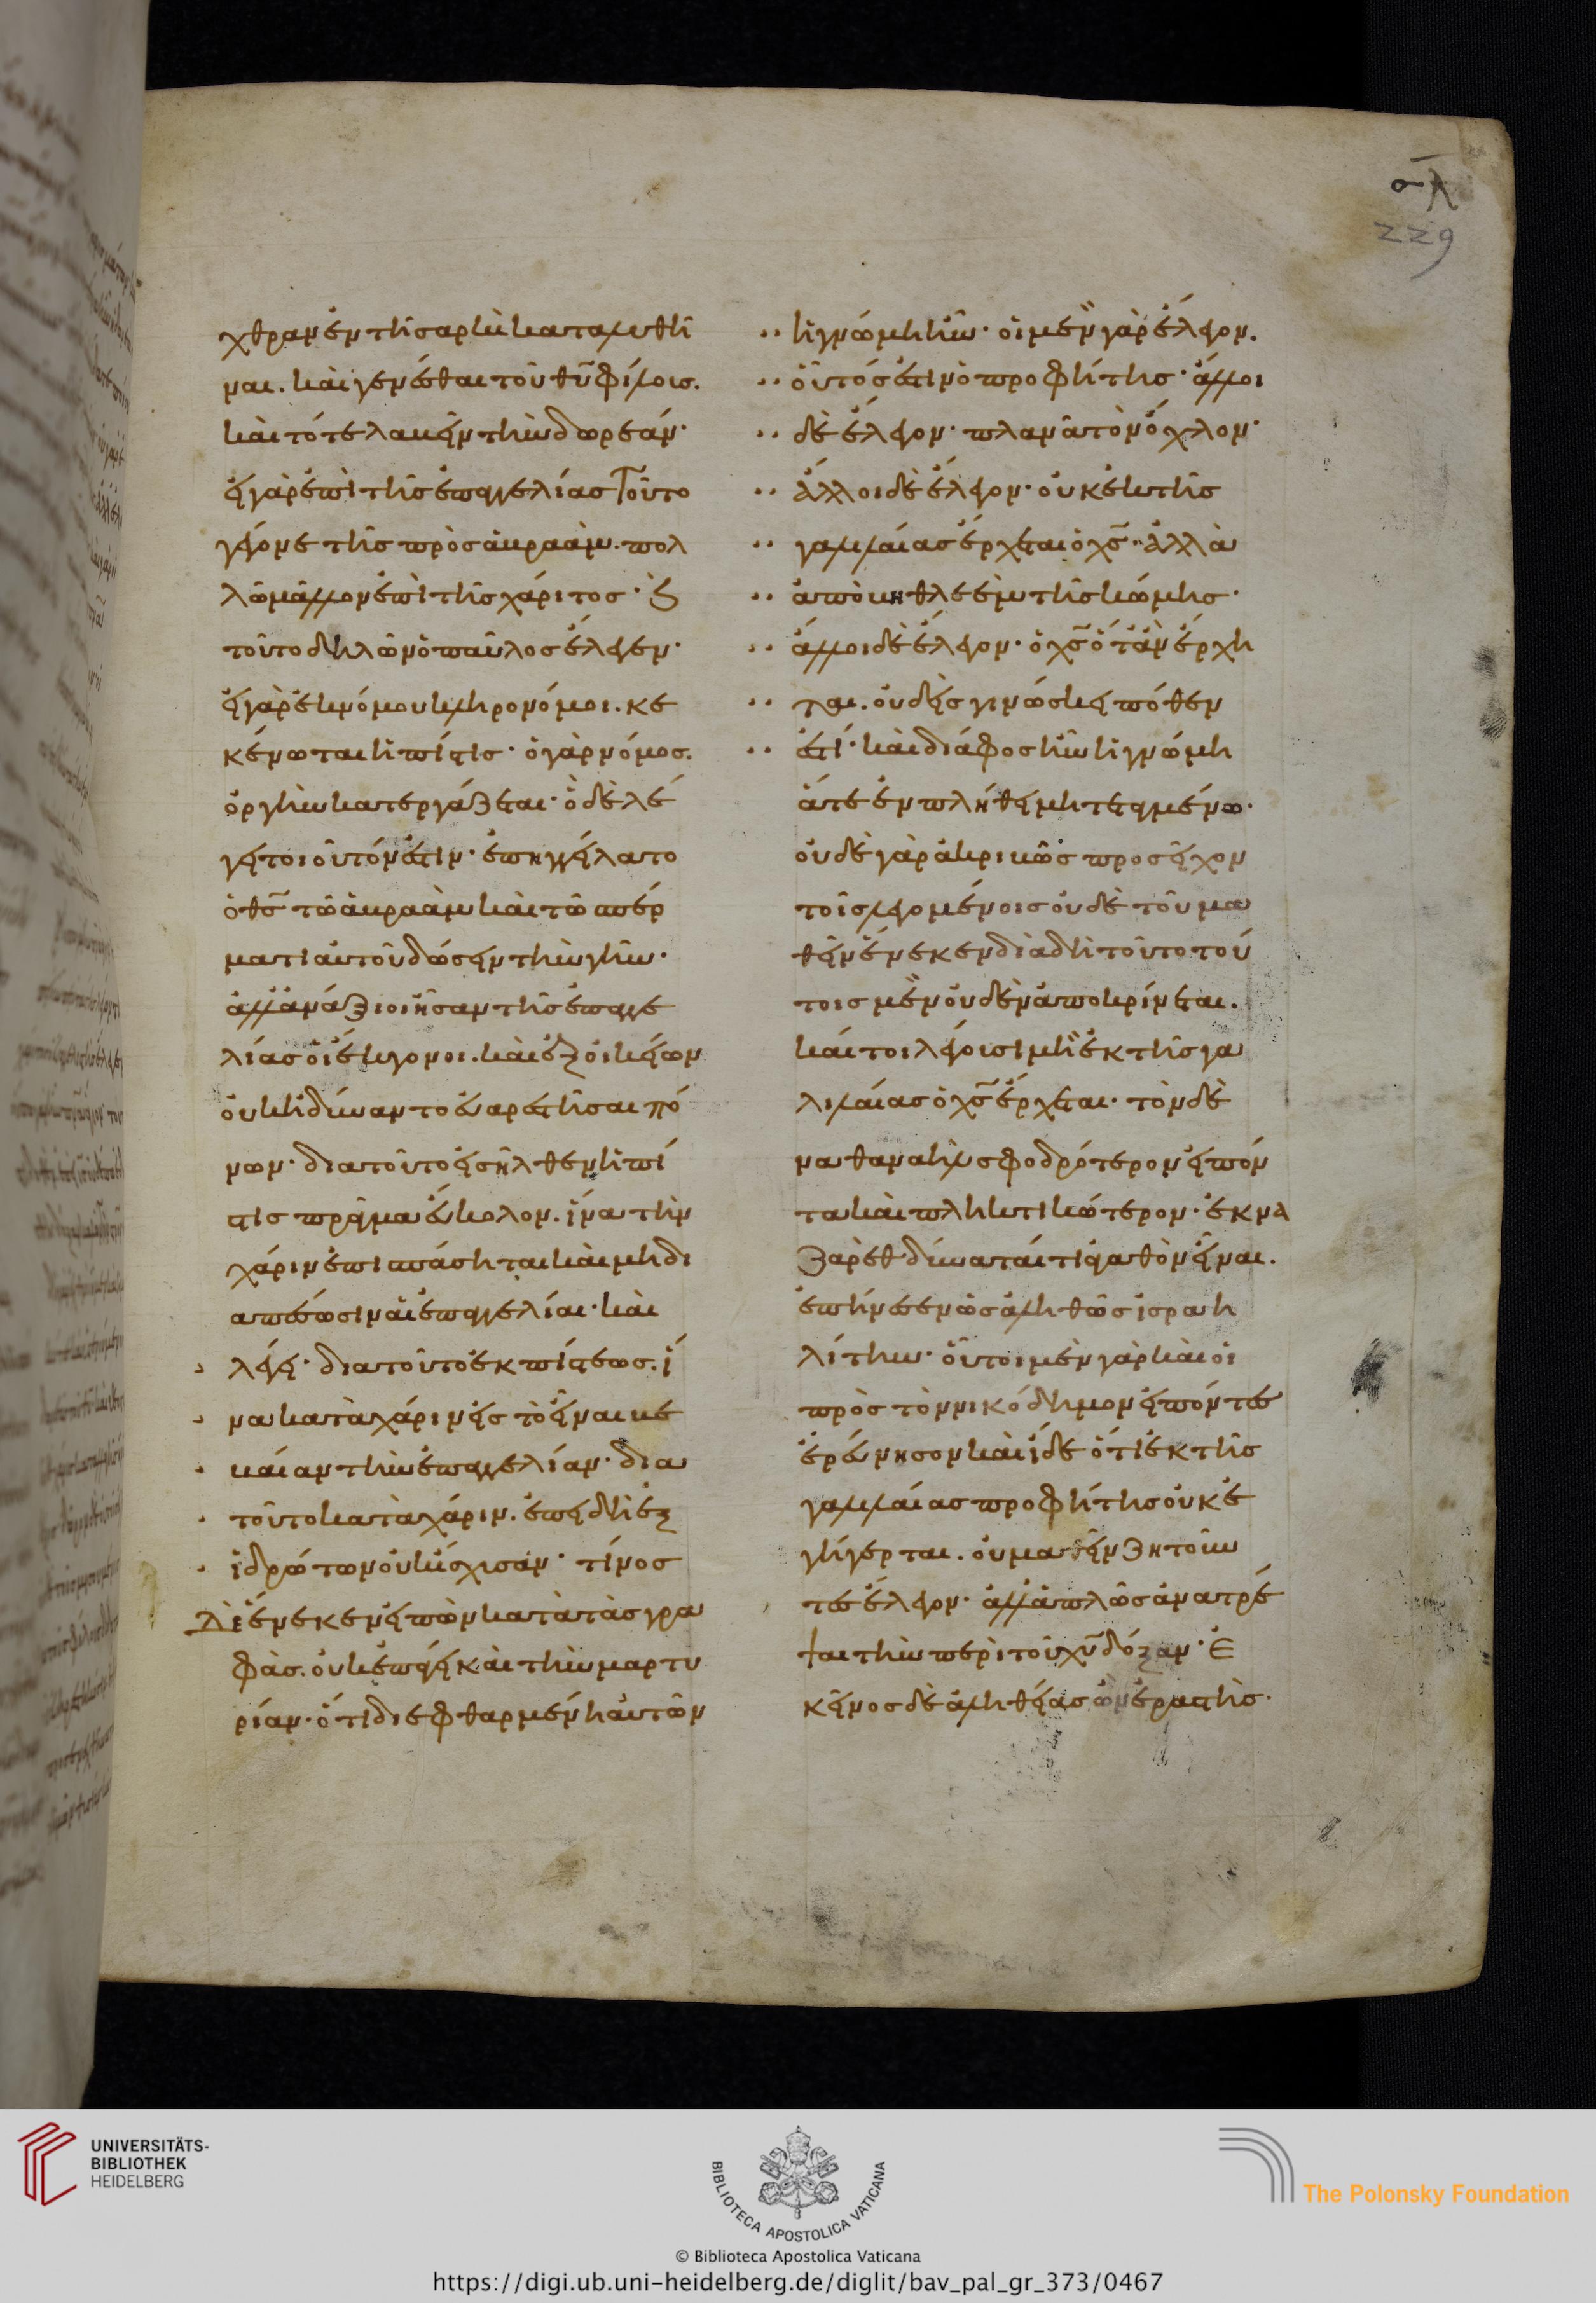 σλ
229
χθραν ἐν τῆ σαρκὶ καταλυθῆ
ναι. καὶ γενέσθαι τοῦ θυ̅ φίλους.
καὶ τότε λαβεῖν τὴν δωρεάν·
εἰ γὰρ ἐπὶ τῆς ἐπαγγελίας τοῦτο
γέγονε τῆς πρὸς ἀβραάμ. πολ
λῶ μᾶλλον ἐπὶ τῆς χάριτος· ϗ
τοῦτο δηλῶν ὁ παῦλος ἔλεγεν·
εἰ γὰρ ἐκ νόμου κληρονόμοι. κε
κένωται ἡ πίστις· ὁ γὰρ νόμος.
ὀργὴν κατεργάζεται· ὃ δὲ λέ
γει τοιοῦτόν ἐστιν· ἐπηγγείλατο
ὁ θς̅ τῶ ἀβραὰμ καὶ τῶ σπέρ
ματι αὐτοῦ δώσειν τὴν γῆν·
ἀλλ' ἀνάξιοι ἦσαν τῆς ἐπαγγε
λίας οἱ ἔκγονοι. καὶ ἐξ οἰκείων
οὐκ ἠδύναντο εὐαρεστῆσαι πό
νων· διατοῦτο εἰσῆλθεν ἡ πί
στις πρᾶγμα εὔκολον. ἵνα τὴν
χάριν ἐπισπάσηται καὶ μὴ δι
απέσωσιν αἱ ἐπαγγελίαι· καὶ
λέγει· διατοῦτο ἐκ πίστεως. ἵ
να κατὰ χάριν εἰς τὸ εἶναι βε
βαίαν τὴν ἐπαγγελίαν· δια
τοῦτο κατὰ χάριν. ἐπειδὴ ἐξ
ἱδρώτων οὐκ ἴσχυσαν· τίνος
δὲ ἕνεκεν εἰπὼν κατὰ τὰς γρα
φὰς. οὐκ ἐπάγει καὶ τὴν μαρτυ
ρίαν· ὅτι διεφθαρμένη αὐτῶν
ἡ γνώμη ἦν· οἱ μὲν γὰρ ἔλεγον.
οὗτός ἐστιν ὁ προφήτης· ἄλλοι
δὲ ἔλεγον· πλανᾶ τὸν ὄχλον·
ἄλλοι δὲ ἔλεγον· οὐκ ἐκ τῆς
γαλιλαίας ἔρχεται ὁ χς̅· ἀλλὰ
ἀπὸ βηθλεὲμ τῆς κώμης·
ἄλλοι δὲ ἔλεγον· ὁ χς̅ ὅταν ἔρχη
ται. οὐδεὶς γινώσκει πόθεν
ἐστί· καὶ διάφορος ἦν ἡ γνώμη
ἅτε ἐν πλήθει μὴ τεταγμένω·
οὐδὲ γὰρ ἀκριβῶς προσεῖχον
τοῖς λεγομένοις οὐδὲ τοῦ μα
θεῖν ἕνεκεν διὰ δὴ τοῦτο τού
τοις μὲν οὐδὲν ἀποκρίνεται.
καίτοι λέγουσι μὴ ἐκ τῆς γα
λιλαίας ὁ χς̅ ἔρχεται· τὸν δὲ
ναθαναὴλ σφοδρότερον εἰπόν
τα καὶ πληκτικώτερον· ἐκ να
ζαρὲθ δύναταί τι ἀγαθὸν εἶναι.
ἐπήνεσεν ὡς ἀληθῶς ἰσραη
λίτην· οὗτοι μὲν γὰρ καὶ οἱ
πρὸς τὸν νικόδημον εἰπόντες
ἐρεύνησον καὶ ἴδε ὅτι ἐκ τῆς
γαλιλαίας προφήτης οὐκ ἐ
γήγερται. οὐ μαθεῖν ζητοῦν
τες ἔλεγον· ἀλλ' ἁπλῶς ἀνατρέ
ψαι τὴν περὶ τοῦ χυ̅ δόξαν· ἐ
κεῖνος δὲ ἀληθείας ὢν ἐραστὴς·
UNIVERSITÄTS-
BIBLIOTHEK
HEIDELBERG
BIBLIOTECA APOSTOLICA VATICANA
The Polonsky Foundation
© Biblioteca Apostolica Vaticana
https://digi.ub.uni-heidelberg.de/diglit/bav_pal_gr_373/0467